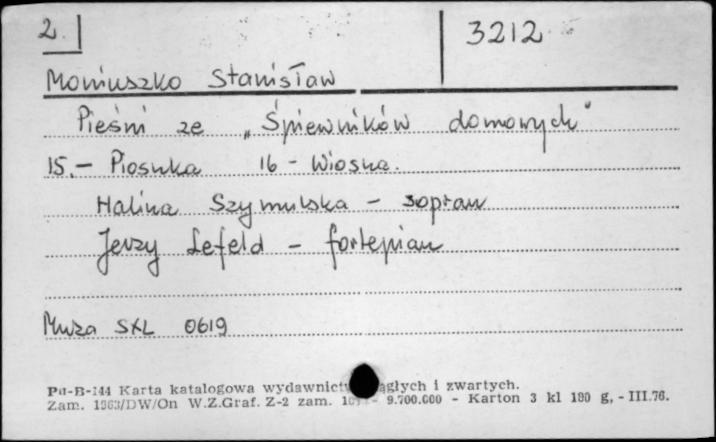 2
3212
Moniuszko Stanisław
Pieśni ze „Śpiewników domowych"
15.- Piosnka 16 - Wiosna.
Halina Szymulska - sopran
Jerzy Lefeld - fortepian
Muza SXL 0619
Pu-B-144 Karta katalogowa wydawnictw ciągłych i zwartych.
Zam. 1963/DW/On W.Z.Graf. Z-2 zam. 9.700.000 - Karton 3 kl 180 g, - III.76.